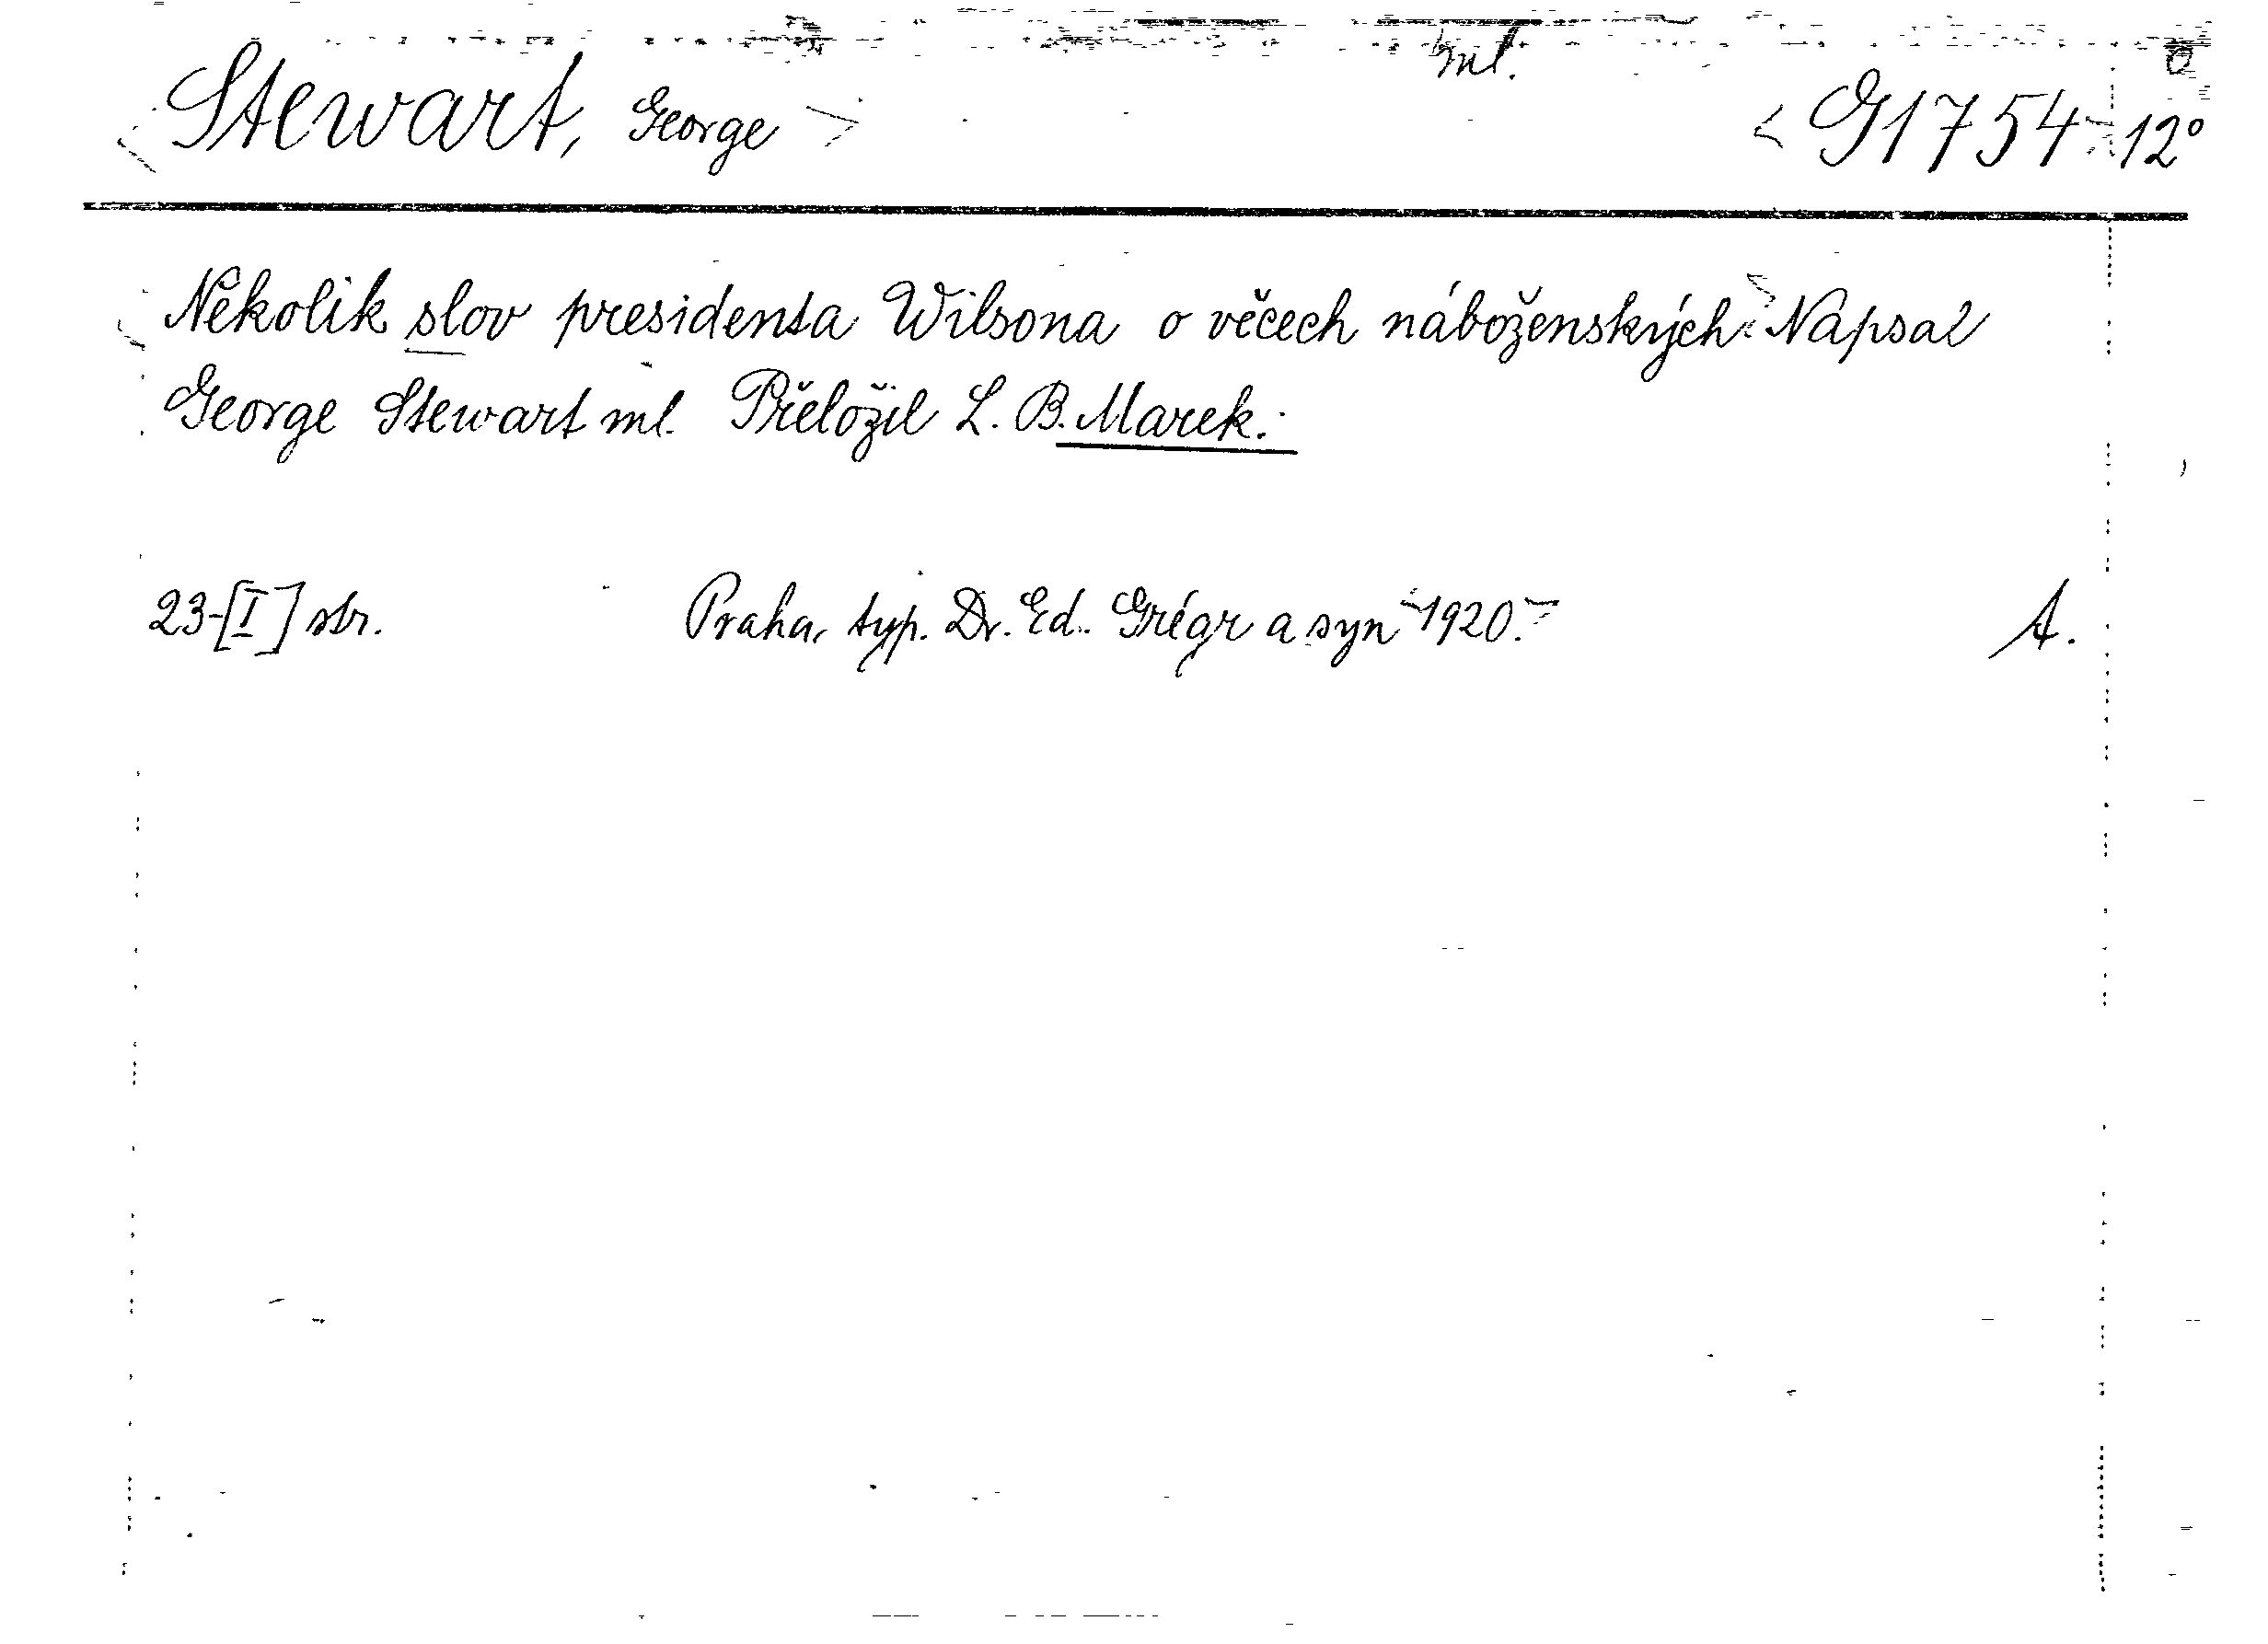 Stewart, George ml. G 1754 12°
Několik slov presidenta Wilsona o věcech náboženských. Napsal
George Stewart ml. Přeložil L. B. Marek.
23-[I] str. Praha, typ. Dr. Ed. Grégr a syn 1920. A.